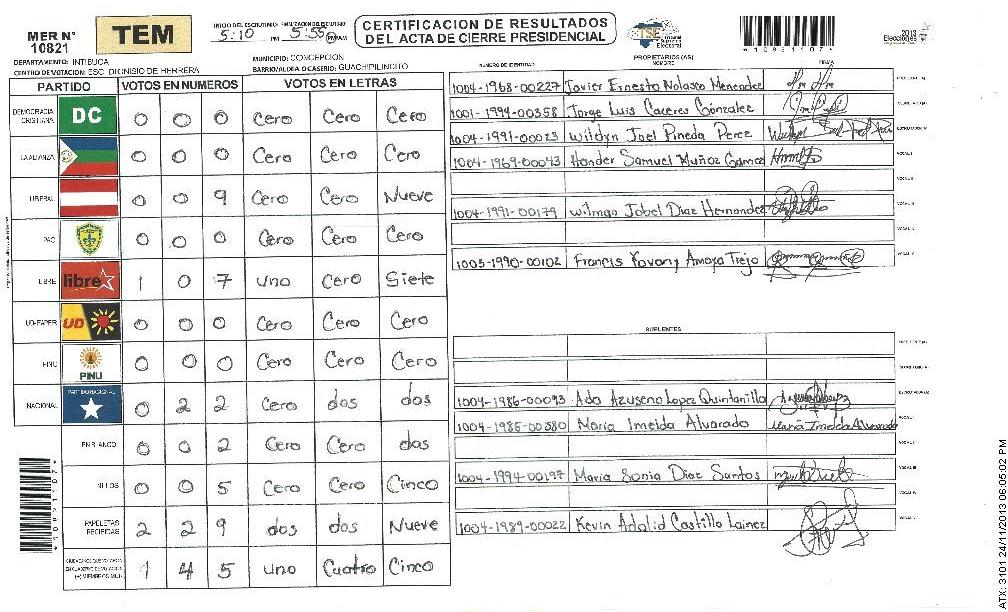 MER N° 10821
TEM
INICIO DEL ESCRUTINIO FINALIZACION DEL ESCRUTINIO
5:10 PM 5:55 PM
CERTIFICACION DE RESULTADOS
DEL ACTA DE CIERRE PRESIDENCIAL
TSE Tribunal Supremo Electoral
2013 Elecciones
*10821107*
DEPARTAMENTO: INTIBUCA
MUNICIPIO: CONCEPCION
CENTRO DE VOTACION: ESC. DIONISIO DE HERRERA
BARRIO/ALDEA O CASERIO: GUACHIPILINCITO
PARTIDO VOTOS EN NUMEROS VOTOS EN LETRAS
DEMOCRACIA CRISTIANA DC 0 0 0 Cero Cero Cero
LA ALIANZA 0 0 0 Cero Cero Cero
LIBERAL 0 0 9 Cero Cero Nueve
PAC 0 0 0 Cero Cero Cero
LIBRE libre 1 0 7 uno Cero Siete
UD-FAPER UD 0 0 0 Cero Cero Cero
PINU PINU 0 0 0 Cero Cero Cero
NACIONAL PARTIDO NACIONAL 0 2 2 Cero dos dos
EN BLANCO 0 0 2 Cero Cero dos
NULOS 0 0 5 Cero Cero Cinco
PAPELETAS RECIBIDAS 2 2 9 dos dos Nueve
1 4 5 uno Cuatro Cinco
PROPIETARIOS (AS)
NUMERO DE IDENTIDAD NOMBRE FIRMA
1004-1968-00227 Javier Ernesto Nolasco Menendez PRESIDENTE(A)
1001-1994-00358 Jorge Luis Caceres Gonzalez SECRETARIO(A)
1004-1991-00023 Wildyn Joel Pineda Perez ESCRUTADOR(A)
1004-1969-00043 Hander Samuel Muñoz VOCAL I
VOCAL II
1004-1991-00179 Wilman Jobel Diaz Hernandez VOCAL III
VOCAL IV
1005-1990-00102 Francis Yovany Amaya Trejo VOCAL V
SUPLENTES
PRESIDENTE(A)
SECRETARIO(A)
1004-1986-00093 Ada Azusena Lopez Quintanilla ESCRUTADOR(A)
1004-1985-00380 Maria Imelda Alvarado Maria Imelda Alvarado VOCAL I
VOCAL II
1004-1994-00197 Maria Sonia Diaz Santos VOCAL III
VOCAL IV
1004-1989-00022 Kevin Adalid Castillo Lainez VOCAL V
*10821107*
ATX: 3101 24/11/2013 06:05:02 PM